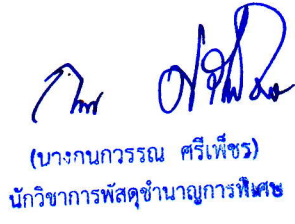 (นางกนกวรรณ ศรีเพ็ชร)
นักวิชาการพัสดุชำนาญการพิเศษ